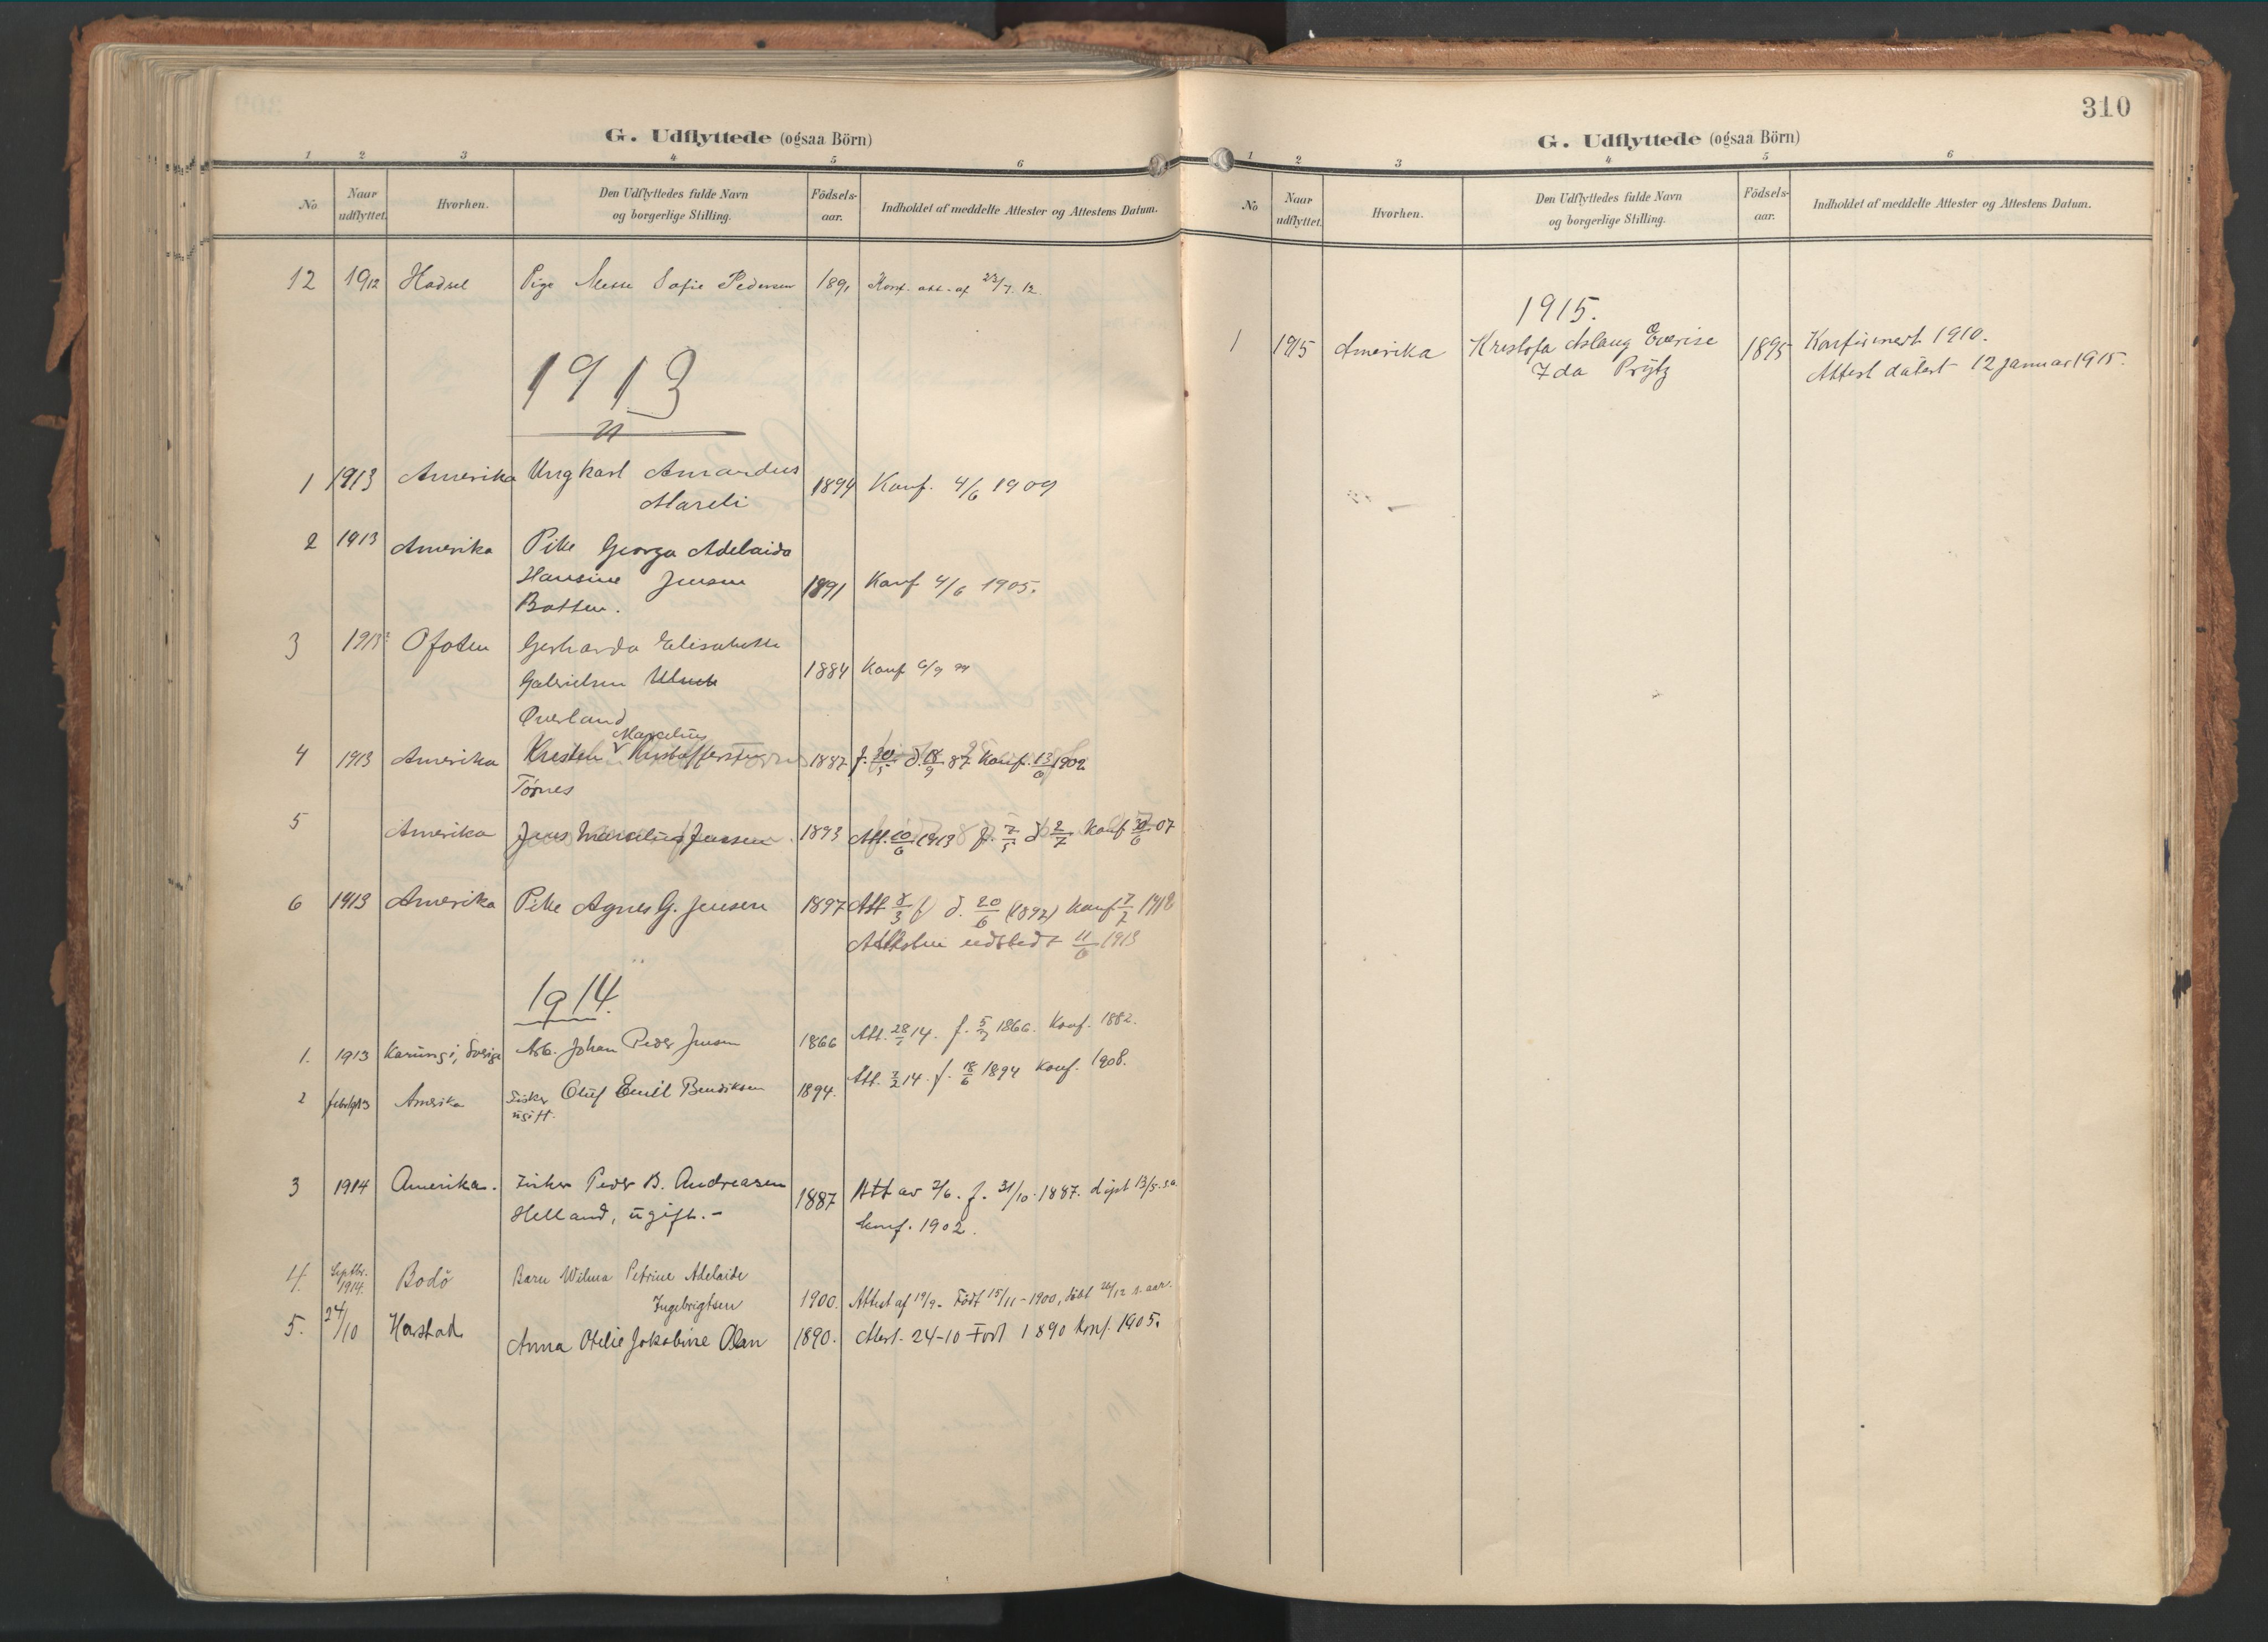 310
G. Udflyttede (ogsaa Börn)
1 2 3 4 5 6
No Naar udflyttet. Hvorhen. Den Udflyttedes fulde Navn og borgerlige Stilling. Födsels-aar. Indholdet af meddelte Attester og Attestens Datum.
12 1912 Hadsel Pige Sofie Pedersen 1891 Konf. att. af 23/7. 12.
1913
1 1913 Amerika Ungkarl Amandus 1894 Konf. 4/6 1909
2 1913 Amerika Pike Georga Adelaida
Hansine Jensen 1891 Konf 4/6 1905.
Botten.
3 1913 Ofoten Gerharda Elisabeth
Gabrielsen 1884 Konf 6/9 99
Överland
Marselius
4 1913 Amerika Kristen Kristoffersen 1887 f. 20/5 d. 18/9 87 Konf. 13/6 1902
Törnes
5 Amerika Jens Marselius Jensen 1893 Att. 10/6 1913 f. 7/5 d 2/7 Konf 30/6 07
6 1913 Amerika Pike Agnes G. Jensen 1897 Att 8/3 f d. 20/6 (1897) Konf 7/7 1912
udstedt 11/6 1913
1914.
1. 1913 Karungi, Sverige Arb. Johan Peder Jensen 1866 Att. 14. f. 1866. Konf. 1882.
2 febr 1913 Amerika Fisker Oluf Emil Bendiksen 1894. Att. 2/2 14. f. 18/6 1894 Konf. 1908.
ugift.
3 1914 Amerika. Fisker Peder B. Andreasen 1887 Att av 2/6. f. 31/10. 1887. döpt 13/5. s.a.
Helland, ugift. - konf. 1902.
4. Septbr. 1914. Bodö Barn Wilma Petrine Adelaide
Ingebrigtsen 1900. Attest af 19/9. Född 15/11 - 1900, döbt 26/12 s. aar.
5. 24/10 Harstad Anna Otelie Jakobine Olsen 1890. Atest. 24-10 Född 1890 Konf. 1905.
G. Udflyttede (ogsaa Börn)
1 2 3 4 5 6
No Naar udflyttet. Hvorhen. Den Udflyttedes fulde Navn og borgerlige Stilling. Födsels-aar. Indholdet af meddelte Attester og Attestens Datum.
1915.
1 1915 Amerika Kristofa Aslaug 1895 Konfirmert 1910.
Ida Prytz Attest datert 12 januar 1915.